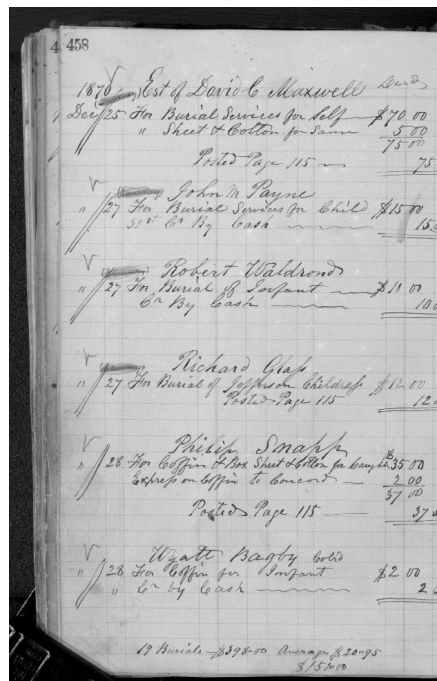 4
458
1870 Est of David C Maxwell Dec'd
Dec 25 For Burial Services for Self $70 00
" Sheet & Cotton for Same 5 00
75 00
Posted Page 115 75
John M Payne
" 27 For Burial Services for Child $15 00
Cr By Cash 15.0
Robert Waldrond
" 27 For Burial of Infant $10 00
Cr By Cash 10 0
Richard Glass
" 27 For Burial of Jefferson Childress $12 00
Posted Page 115 12 0
Philip Snapp
" 28 For Coffin & Box Sheet & Cotton for Daughter $35 00
Express on Coffin to Concord 2 00
37 00
Posted Page 115 37 0
Wyatt Bagby Col'd
" 28 For Coffin for Infant $2 00
" Cr by Cash 2
19 Burials $398.00 Average $20.95
$151.00